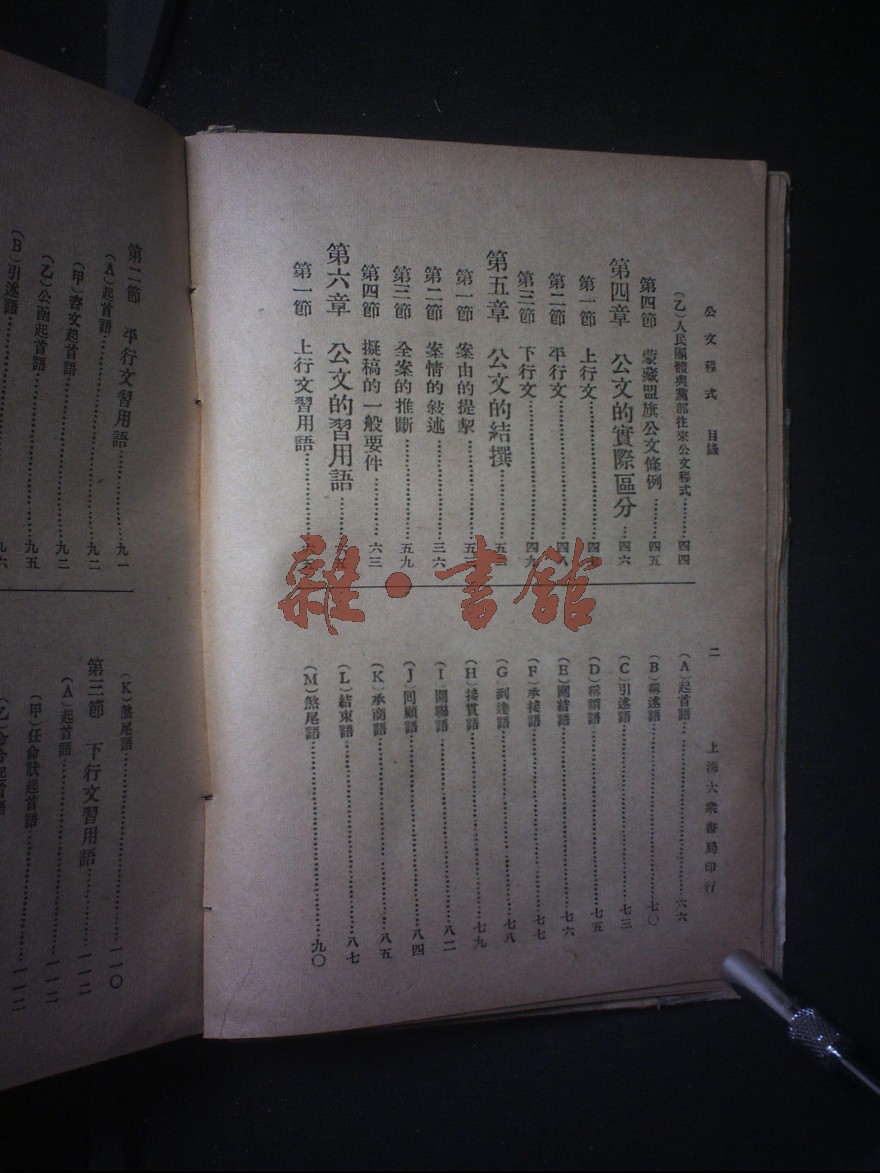 公文程式　目錄
(乙)人民團體與黨部往來公文程式………四四
第四節　蒙藏盟旗公文條例……四五
第四章　公文的實際區分…四六
第一節　上行文………四七
第二節　平行文………四八
第三節　下行文………四九
第五章　公文的結撰……五
第一節　案由的提挈………五
第二節　案情的敍述………三六
第三節　全案的推斷………五九
第四節　擬稿的一般要件……六三
第六章　公文的習用語……六五
第一節　上行文習用語………六五
二
上海大衆書局印行
(A)起首語………六六
(B)稱述語………七〇
(C)引述語………七三
(D)稱謂語………七五
(E)關結語………七六
(F)承接語………七七
(G)到達語………七八
(H)接貫語………七九
(I)關聯語………八二
(J)回顧語………八四
(K)承商語………八五
(L)結束語………八七
(M)煞尾語………九〇
第二節　平行文習用語………九一
(A)起首語………九二
(甲)咨文起首語………九二
(乙)公函起首語………九五
(B)引述語………九六
(K)煞尾語………一一〇
第三節　下行文習用語……一一二
(A)起首語………一一二
(甲)任命狀起首語………一一二
雜·書館